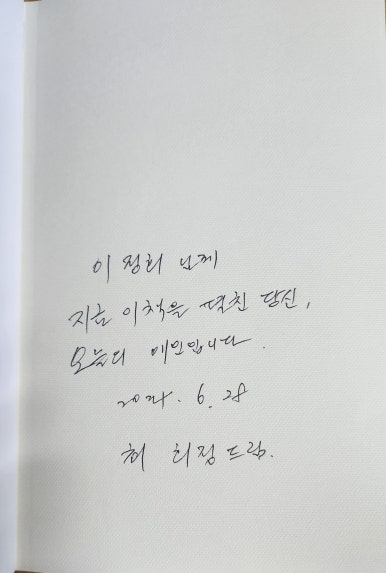 이정희 님께
지금 이 책을 펼친 당신,
오늘의 애인입니다.
2024. 6. 28
허 희정 드림.